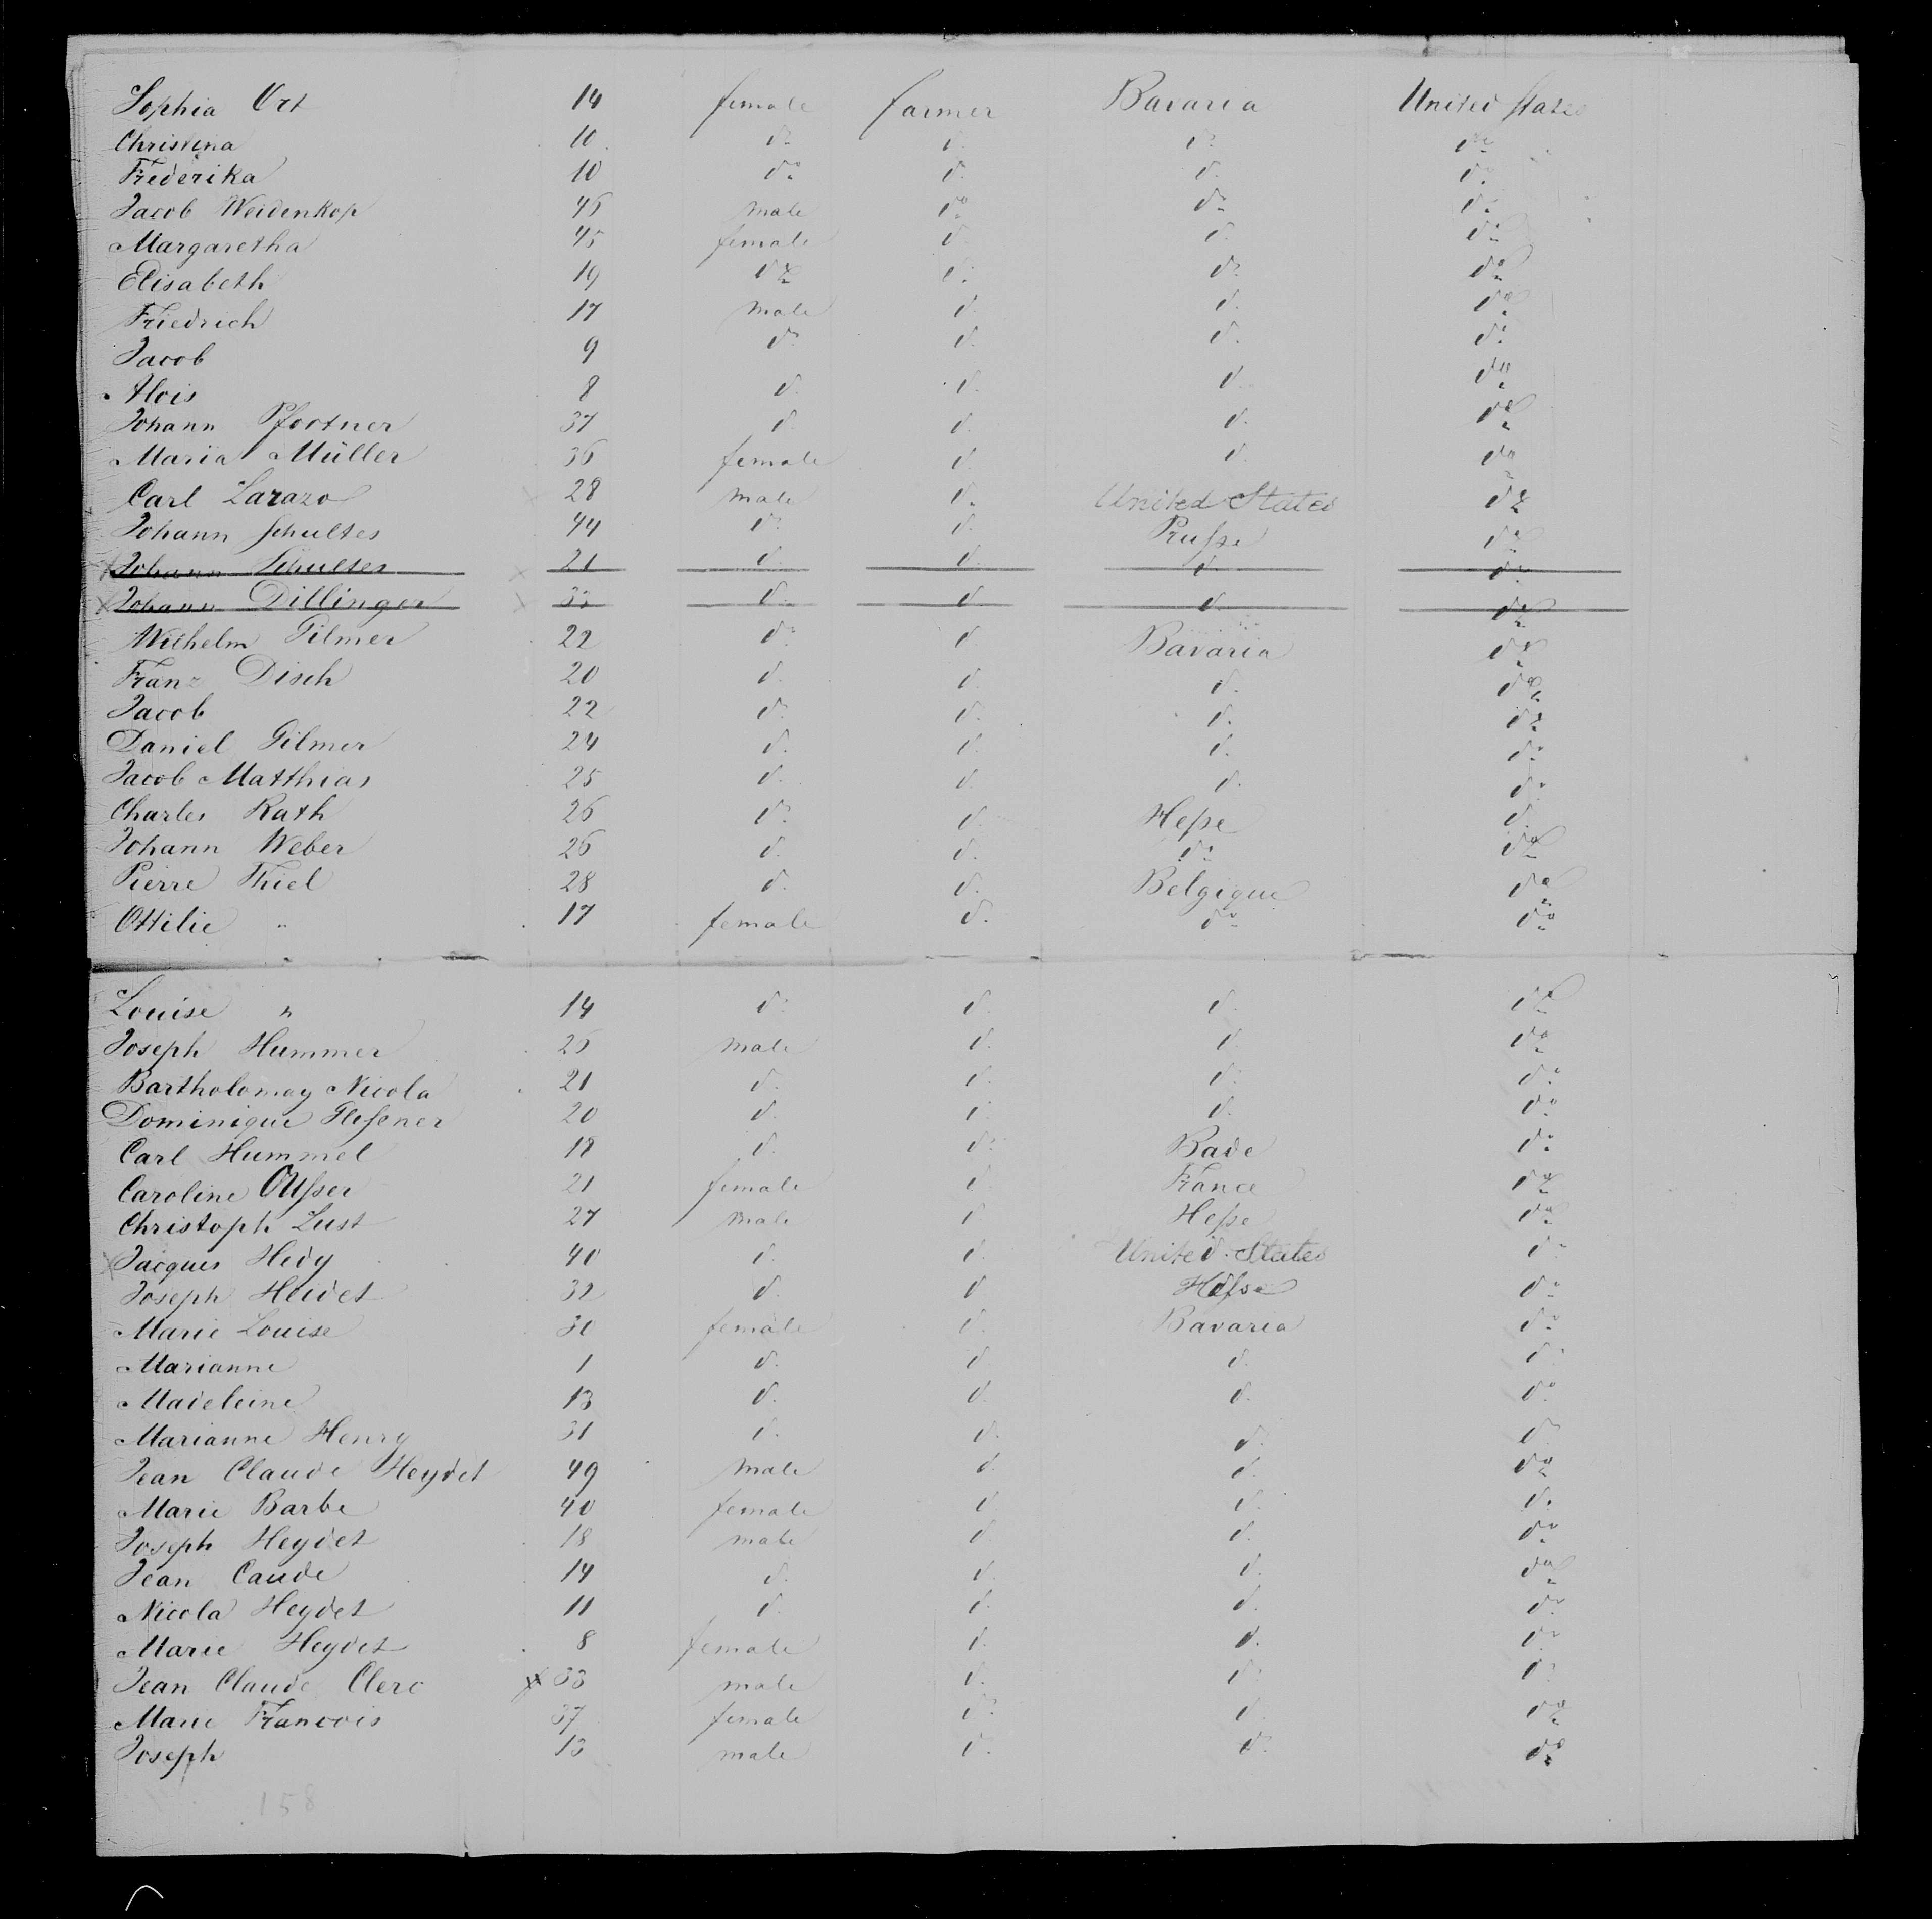 Sophia Ort 14 female farmer Bavaria United States
Christina 10 do do do do
Frederika 10 do do do do
Jacob Weidenkop 46 male do do do
Margaretha 45 female do do do
Elisabeth 19 do do do do
Friedrich 17 male do do do
Jacob 9 do do do do
Alois 8 do do do do
Johann Pfortner 37 do do do do
Maria Müller 36 female do do do
Carl Larazo 28 male do United States do
Johann Schultes 44 do do Prusse do
Johann Schultes 21 do do do do
Johann Dillinger 33 do do do do
Wilhelm Gilmer 22 do do Bavaria do
Franz Disch 20 do do do do
Jacob 22 do do do do
Daniel Gilmer 24 do do do do
Jacob Matthias 25 do do do do
Charles Rath 26 do do Hesse do
Johann Weber 26 do do do do
Pierre Thiel 28 do do Belgique do
Ottilie " 17 female do do do
Louise " 14 do do do do
Joseph Hummer 26 male do do do
Bartholomay Nicola 21 do do do do
Dominique 20 do do do do
Carl Hummel 18 do do Bade do
Caroline 21 female do France do
Christoph Lust 27 male do Hesse do
Jacques Hedy 40 do do United States do
Joseph Heidet 32 do do Hesse do
Marie Louise 30 female do Bavaria do
Marianne 1 do do do do
Madeleine 13 do do do do
Marianne Henry 31 do do do do
Jean Claude Heydet 49 male do do do
Marie Barbe 40 female do do do
Joseph Heydet 18 male do do do
Jean Caude 14 do do do do
Nicola Heydet 11 do do do do
Marie Heydet 8 female do do do
Jean Claude Clerc 33 male do do do
Marie Francois 37 female do do do
Joseph 13 male do do do
158